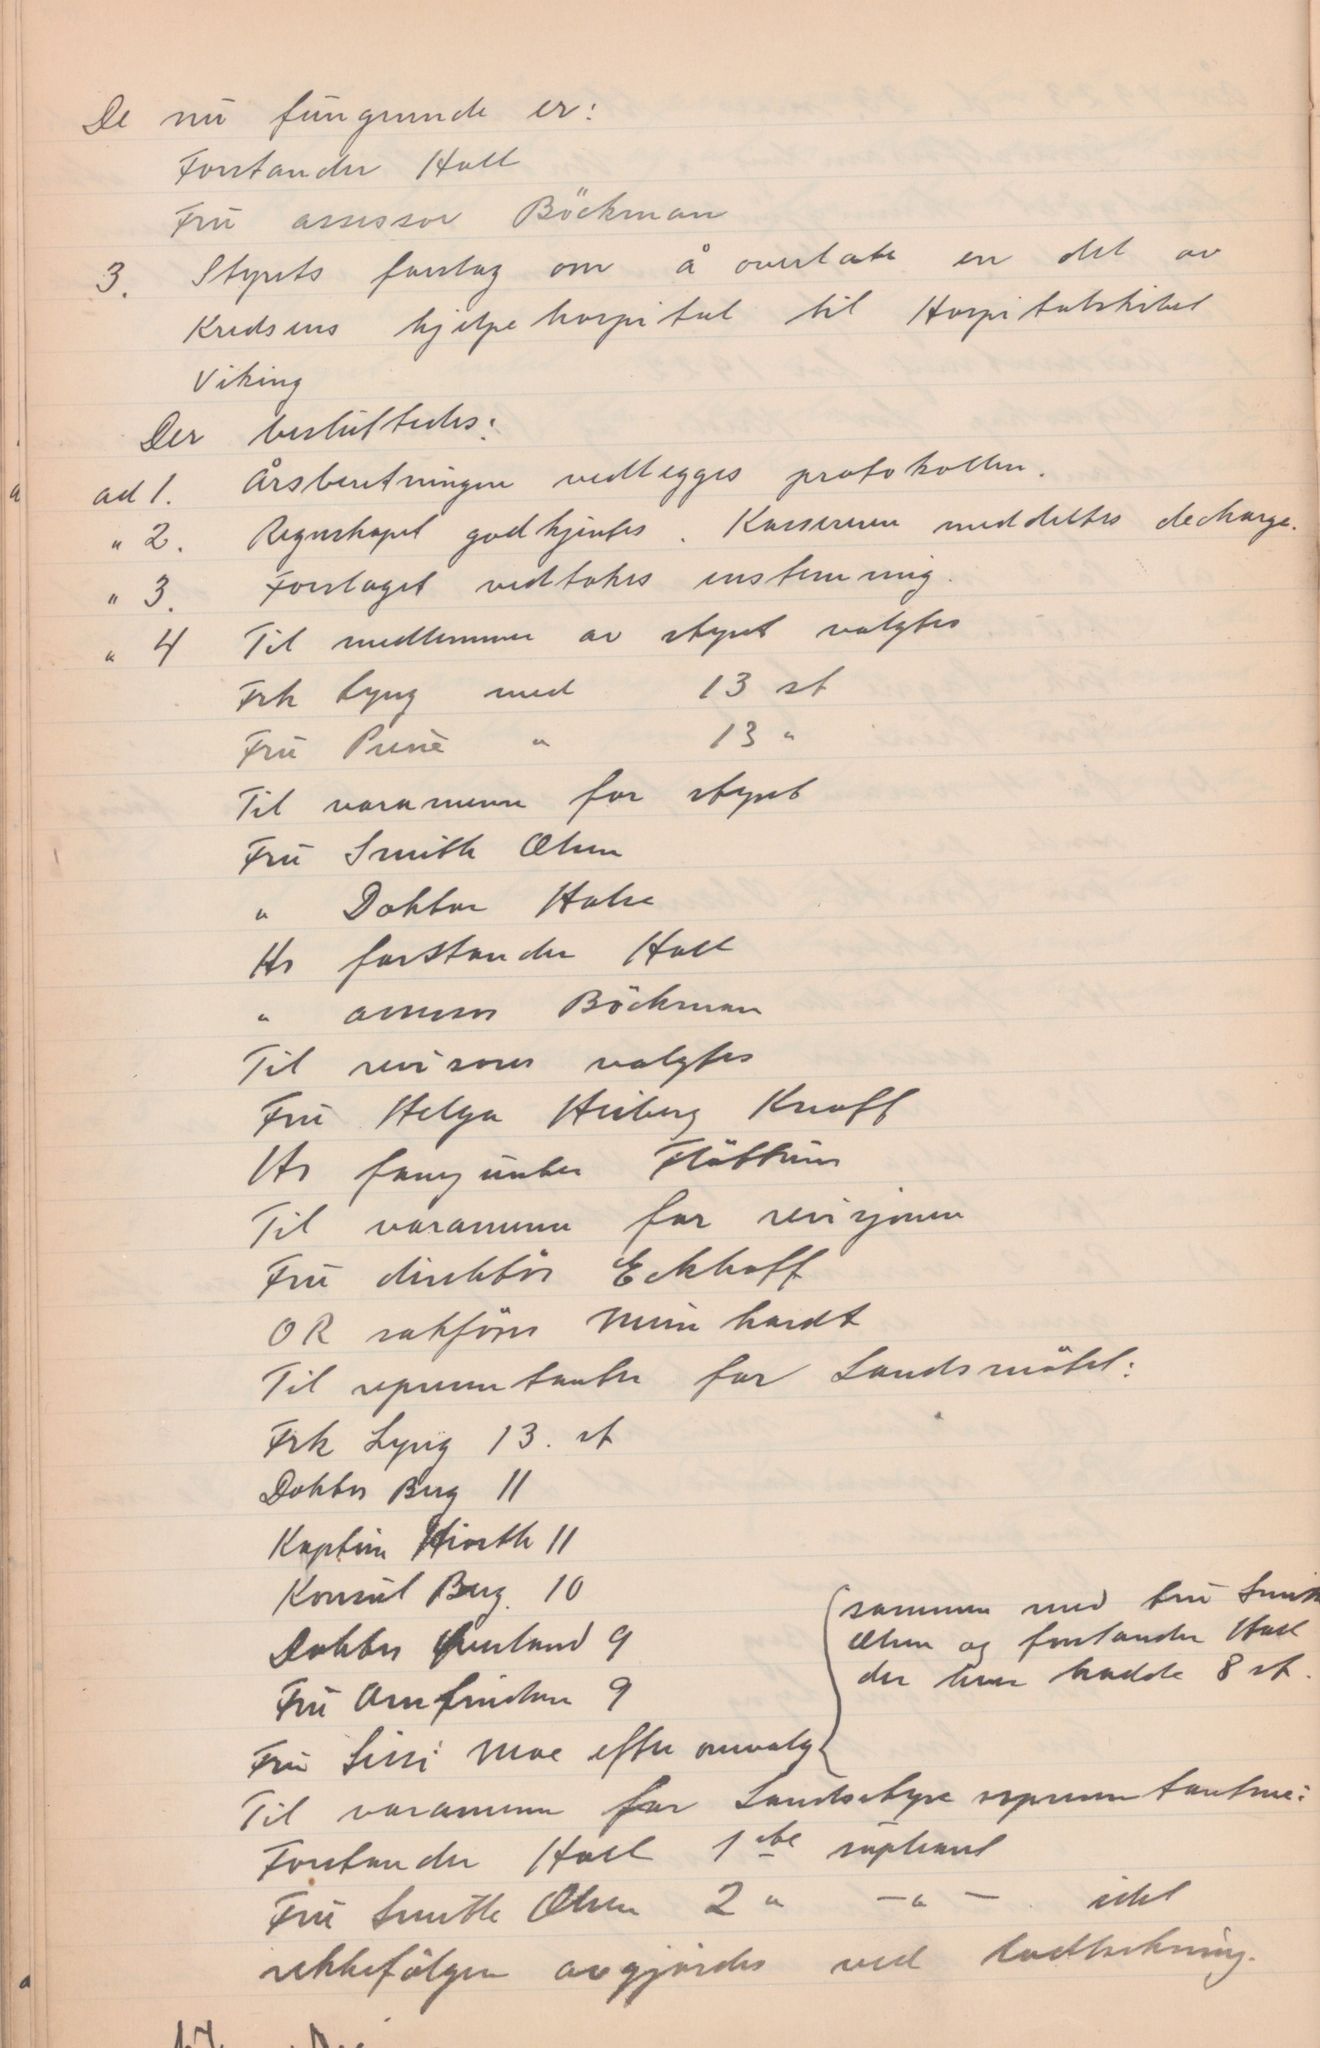 De nu fungerende er:
Forstander Hall
Fru assessor Böckman
3. Styrets forslag om å overlate en del av
Kredsens hjelpehospital til Hospitalskibet
Viking
Der besluttedes:
ad 1. Årsberetningen vedlegges protokollen.
" 2. Regnskapet godkjentes. Kassereren meddeltes decharge.
" 3. Forslaget vedtokes enstemmig.
" 4 Til medlemmer av styret valgtes
Frk Lyng med 13 st
Fru " 13 "
Til varamenn for styret
Fru Smith Olsen
" Doktor Halse
Hr forstander Hall
" assessor Böckman
Til revisorer valgtes
Fru Helga Heiberg Knoff
Hr Flöttum
Til varamenn for revisjonen
Fru direktör Eckhoff
OR sakförer Meinhardt
Til representanter for Landsmötet:
Frk Lyng 13. st
Doktor Berg 11
Kaptein Hiorth 11
Konsul Berg. 10
Doktor 9
Fru Arnfindsen 9
Fru Sissi Moe efter omvalg
sammen med fru Smith
Olsen og forstander Hall
der hver hadde 8 st.
Til varamenn for Landsstyre representantene:
Forstander Hall 1ste supleant
Fru Smith Olsen 2 " — " — idet
rekkefölgen avgjordes ved lodtrekning.